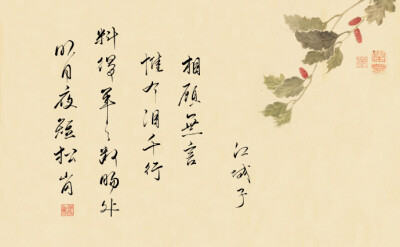 江城子
相顧無言
惟有泪千行
料得年々断腸处
明月夜短松岗